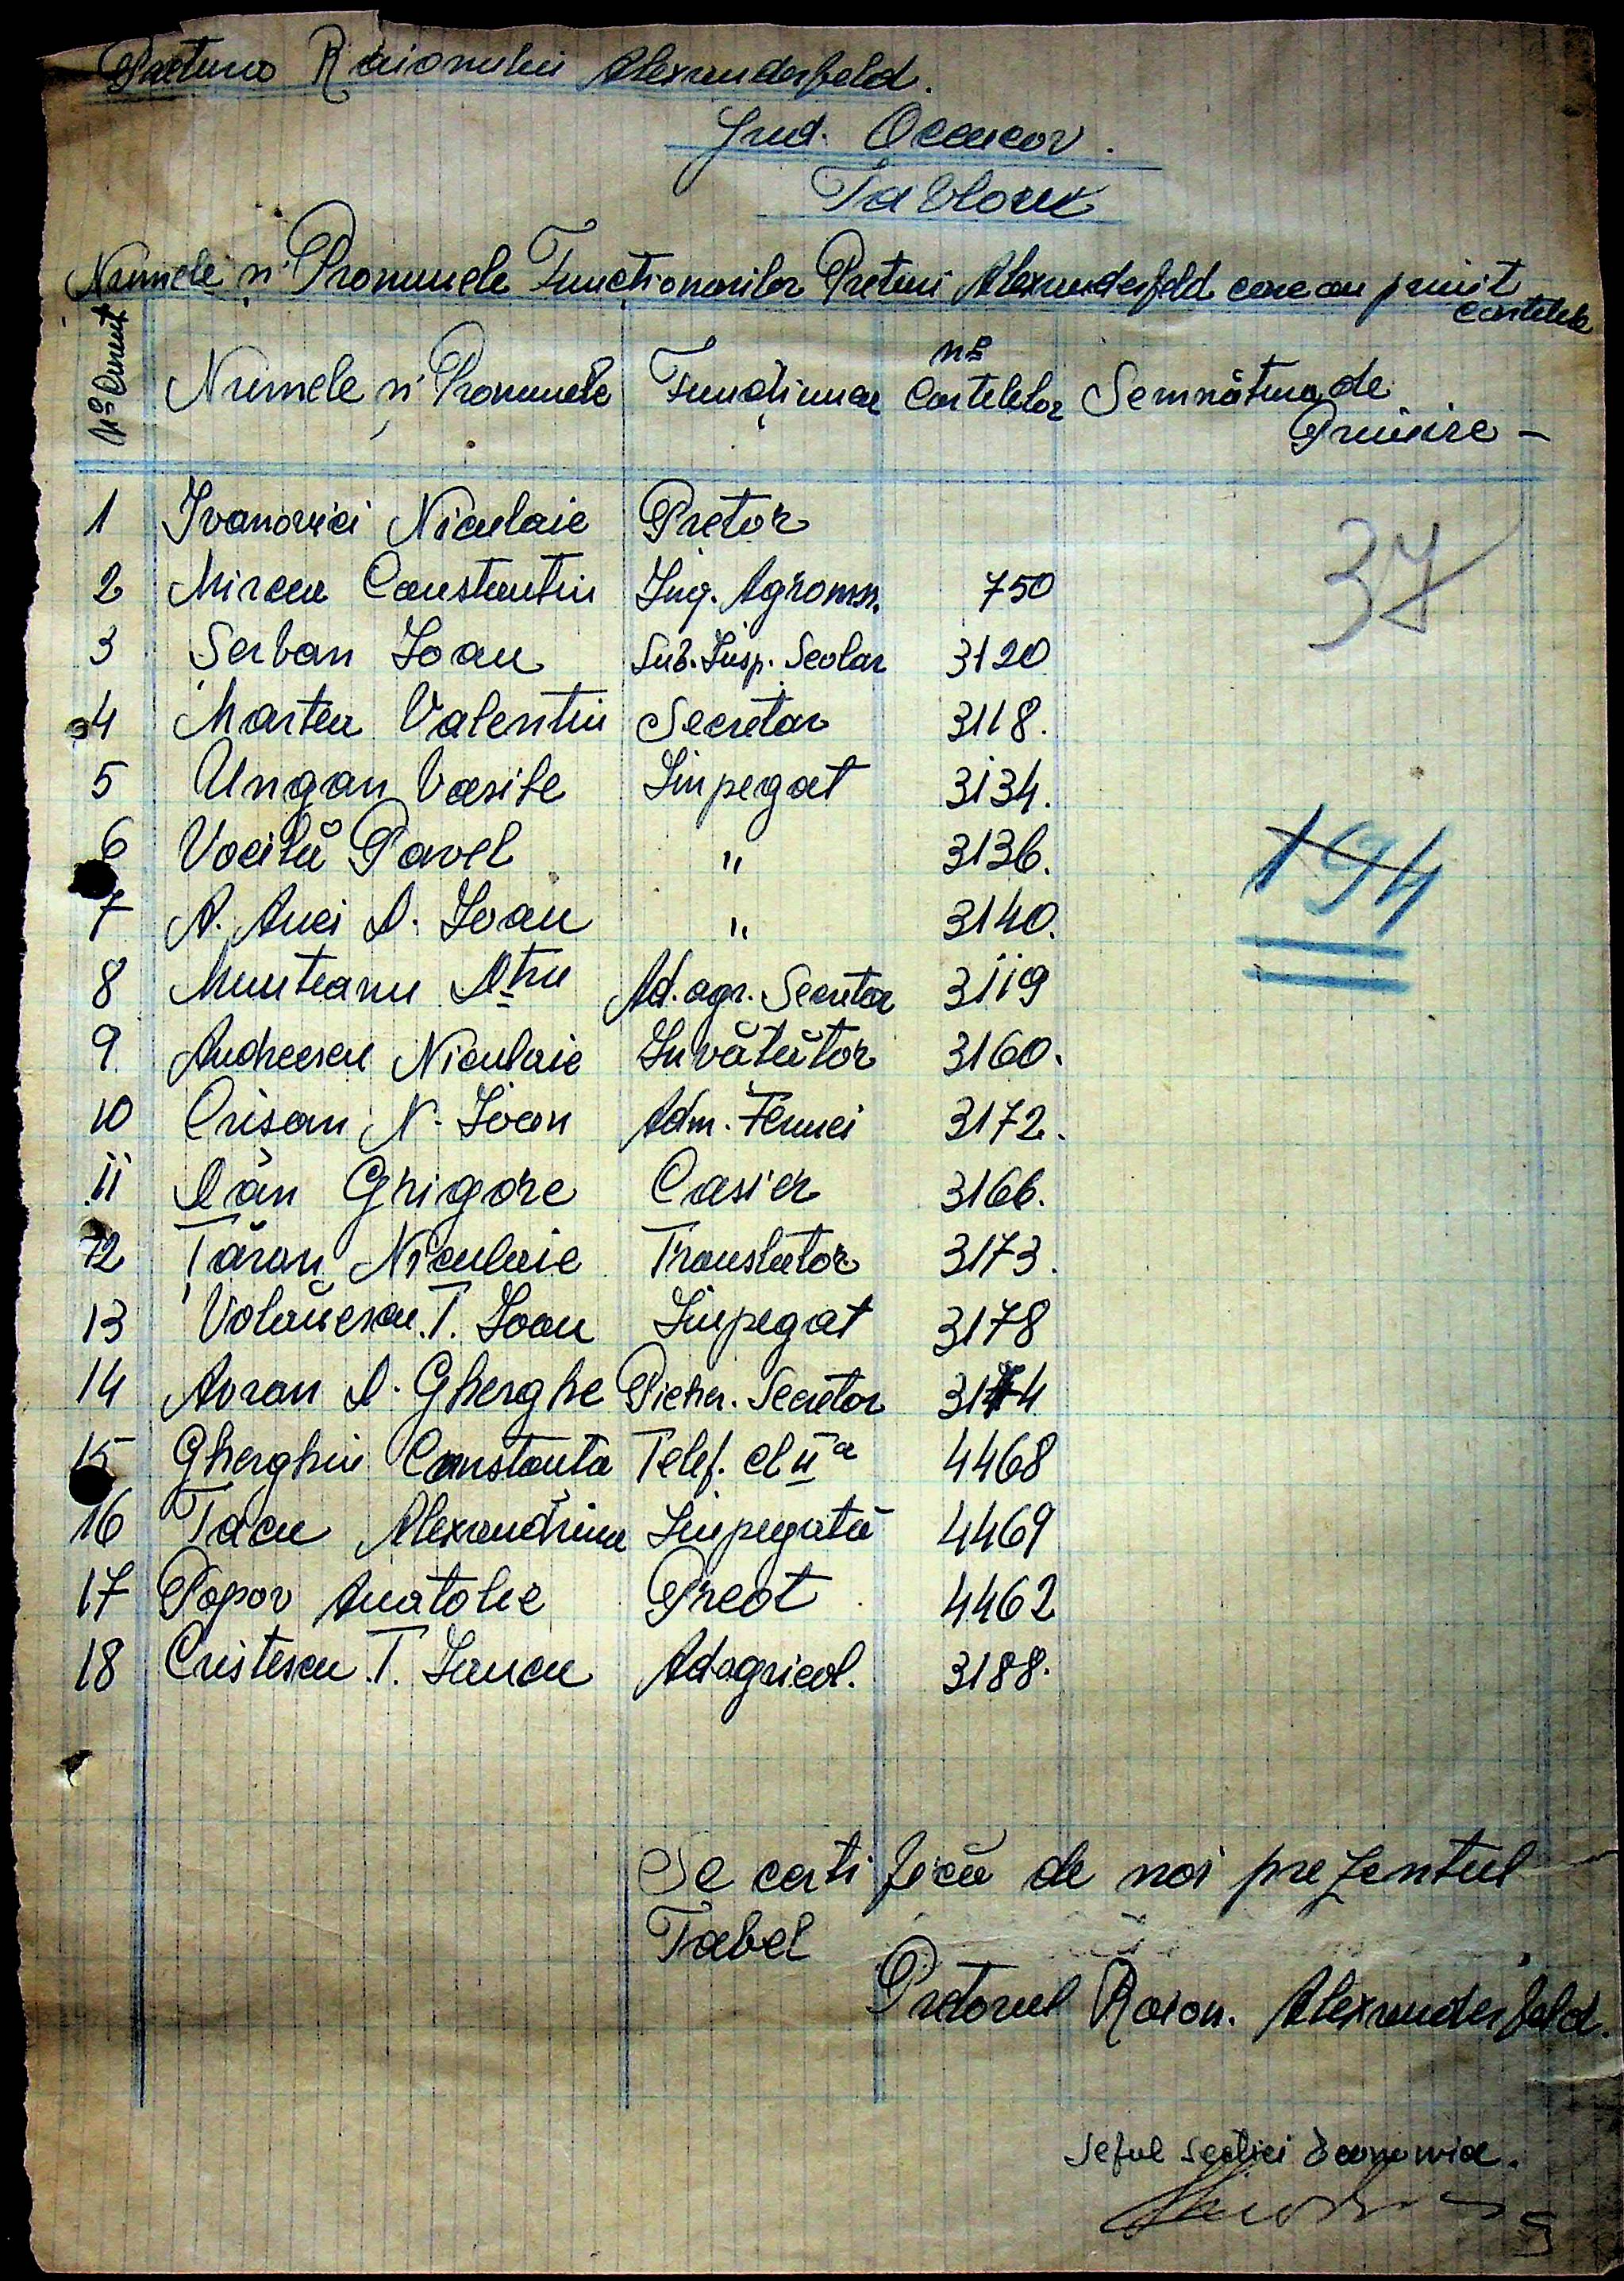 Pretura Raionului Alexanderfeld.
Jud. Oceacov.
Tablou
Numele și Pronumele Funcționarilor Preturi Alexanderfeld care au primit
cartelele
No Curent
Numele și Pronumele Funcțiunea No Cartelelor Semnătura de
Primire -
1 Ivanovici Niculaie Pretor
37
2 Mircea Constantin Ing. Agronom. 750
3 Șerban Ioan Sub. Insp. Scolar 3120
4 Martea Valentin Secretar 3118.
5 Ungan Vasile Impegat 3134.
6 Vocilă Pavel " 3136.
194
7 A. Anei D. Ioan " 3140.
8 Munteanu Dtru Ad. agr. Secretar 3119
9 Andreescu Niculaie Învățător 3160.
10 Crisan N. Ioan Adm. Fermei 3172.
11 Dan Grigore Casier 3166.
12 Țăran Niculaie Translator 3173.
13 Volănescu T. Ioan Impegat 3178
14 Avran D. Gherghe Picher. Secretar 3174
15 Gherghin Constanța Telef. cl II a 4468
16 Tacu Alexandrina Impegată 4469
17 Popov Anatolie Preot 4462
18 Cristescu T. Iancu Ad agricol. 3188.
Se certifică de noi prezentul
Tabel
Pretorul Raion. Alexanderfeld.
Seful Secției Economice.
5